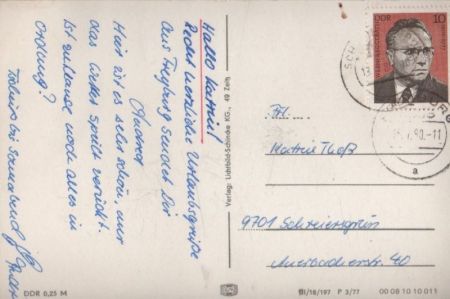 Hallo Kattrin!
Recht herzliche Urlaubsgrüße
aus Freyburg sendet Dir
Andrea
Hier ist es sehr schön, nur
das Wetter spielt verrückt.
Ist zuhause noch alles in
Ordnung?
Tschüß bis Sonnabend
DDR 0,25 M
Verlag: Lichtbild-Schincke KG., 49 Zeitz
DDR
10
Frl.
Kattrin
9701 Schreiersgrün
Auerbacherstr. 40
90.-11
a
III/18/197 P 3/77 00 08 10 10 011